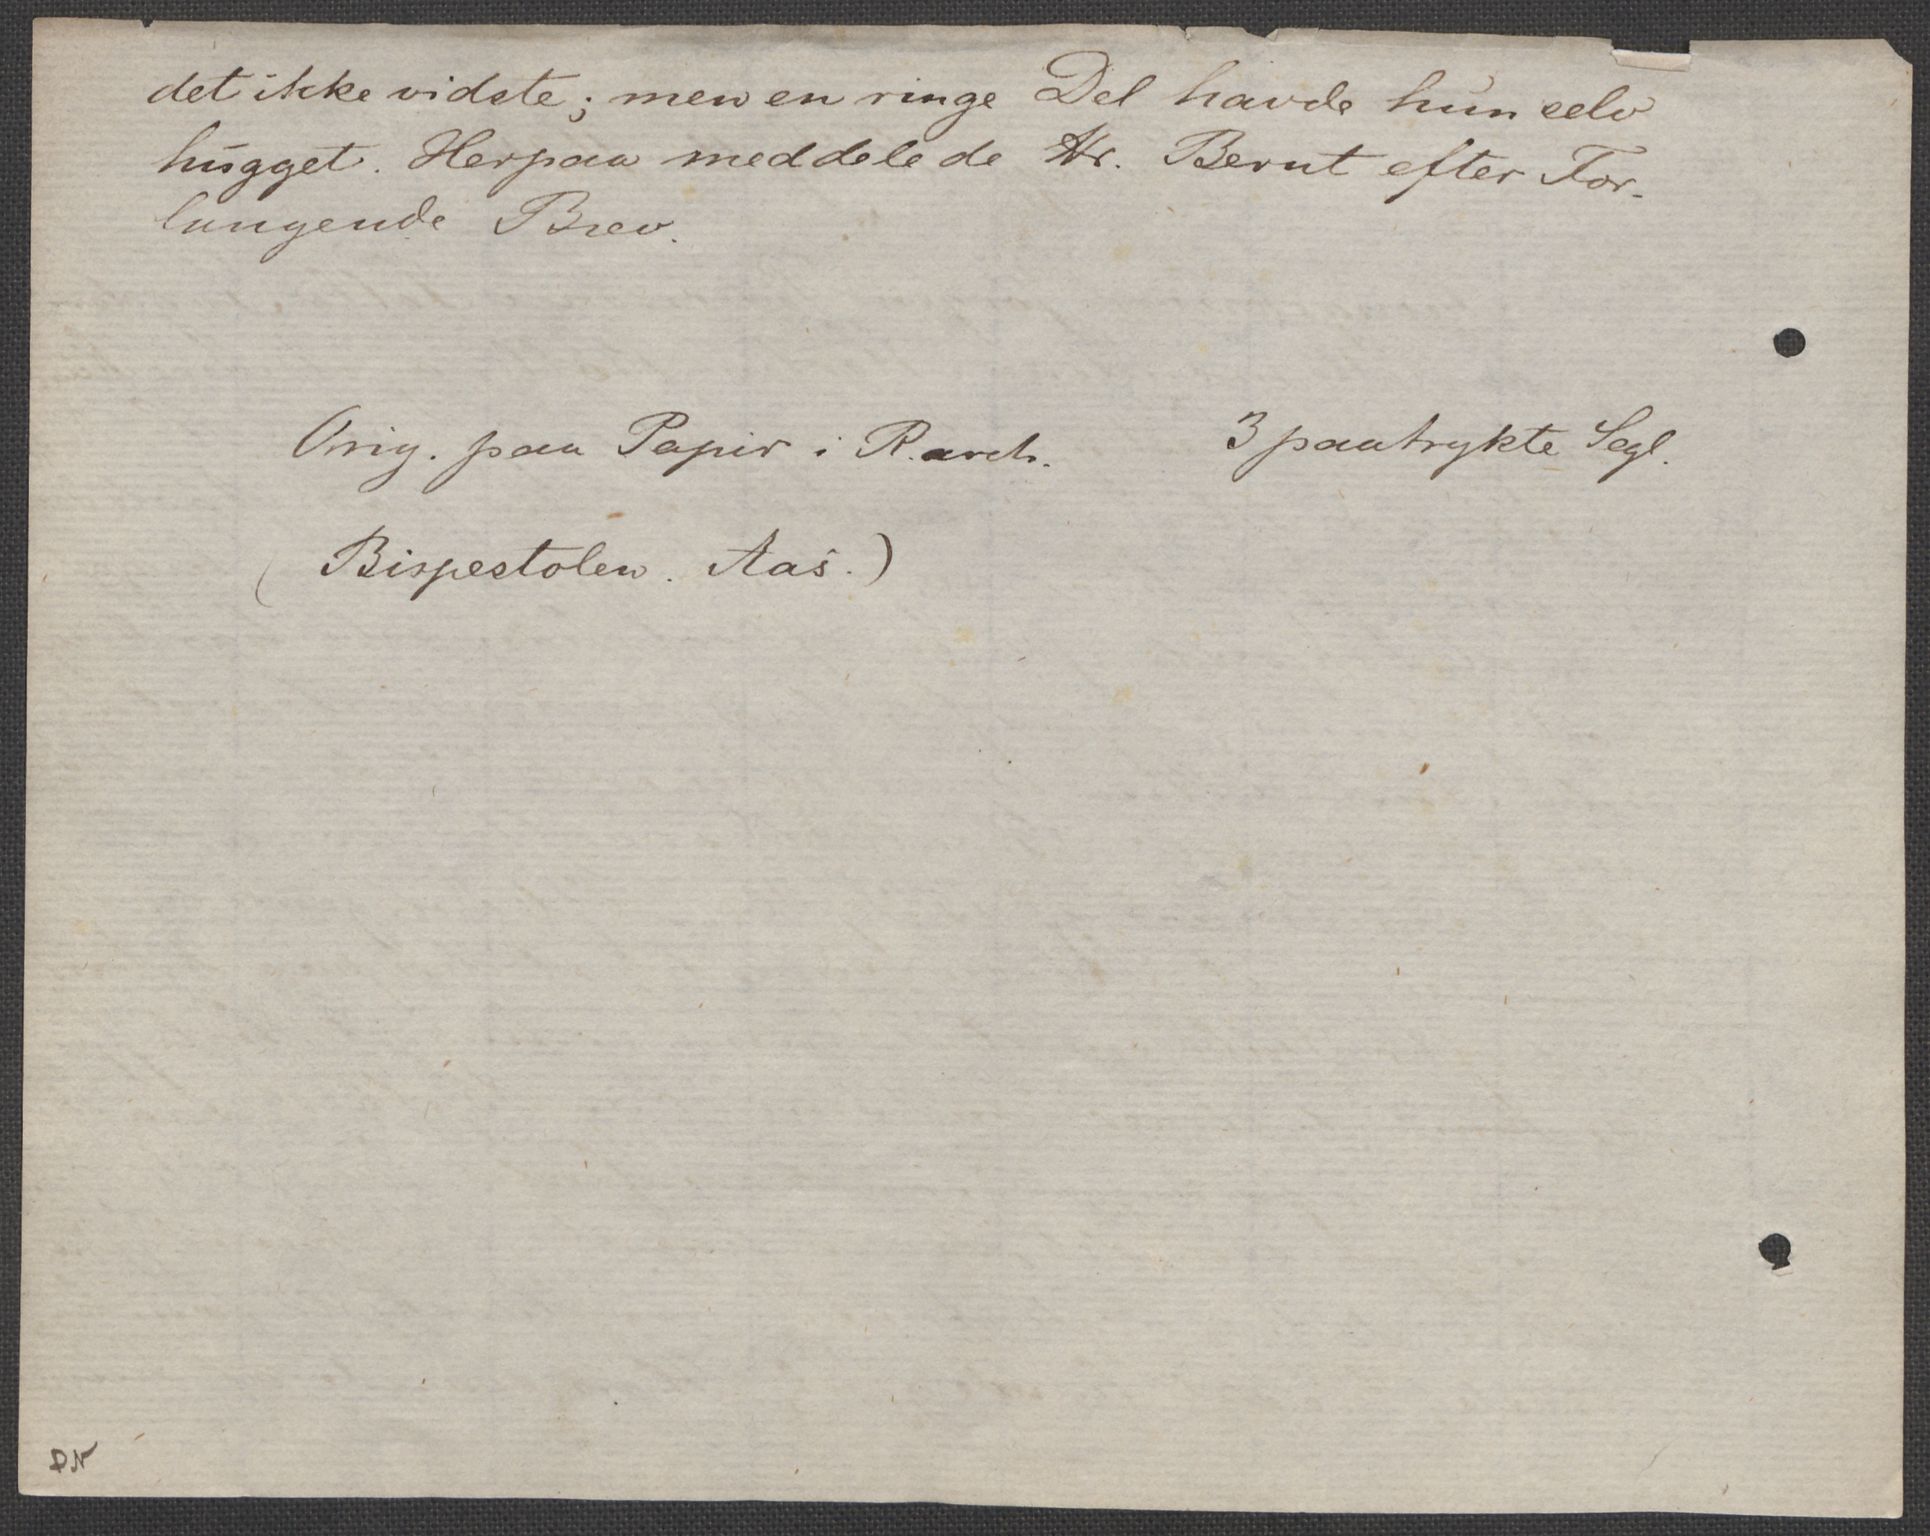 det ikke vidste; men en ringe Del havde hun selv
hugget. Herpaa meddelede Hr. Bernt efter For-
langende Brev.
Orig. paa Papir i R.arch. 3 paatrykte Segl.
(Bispestolen. Aas.)
DN